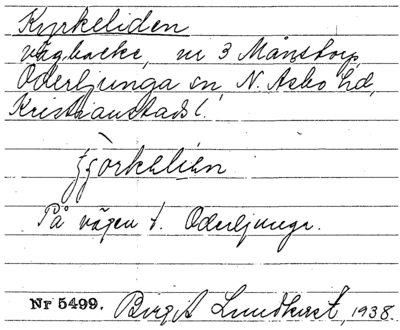 Kyrkeliden
vägbacke, nr 3 Månstorp,
Oderljunga sn, N. Åsbo hd,
Kristianstads l.
På vägen t. Oderljunga.
Nr 5499. Birgit Lundkvist, 1938.